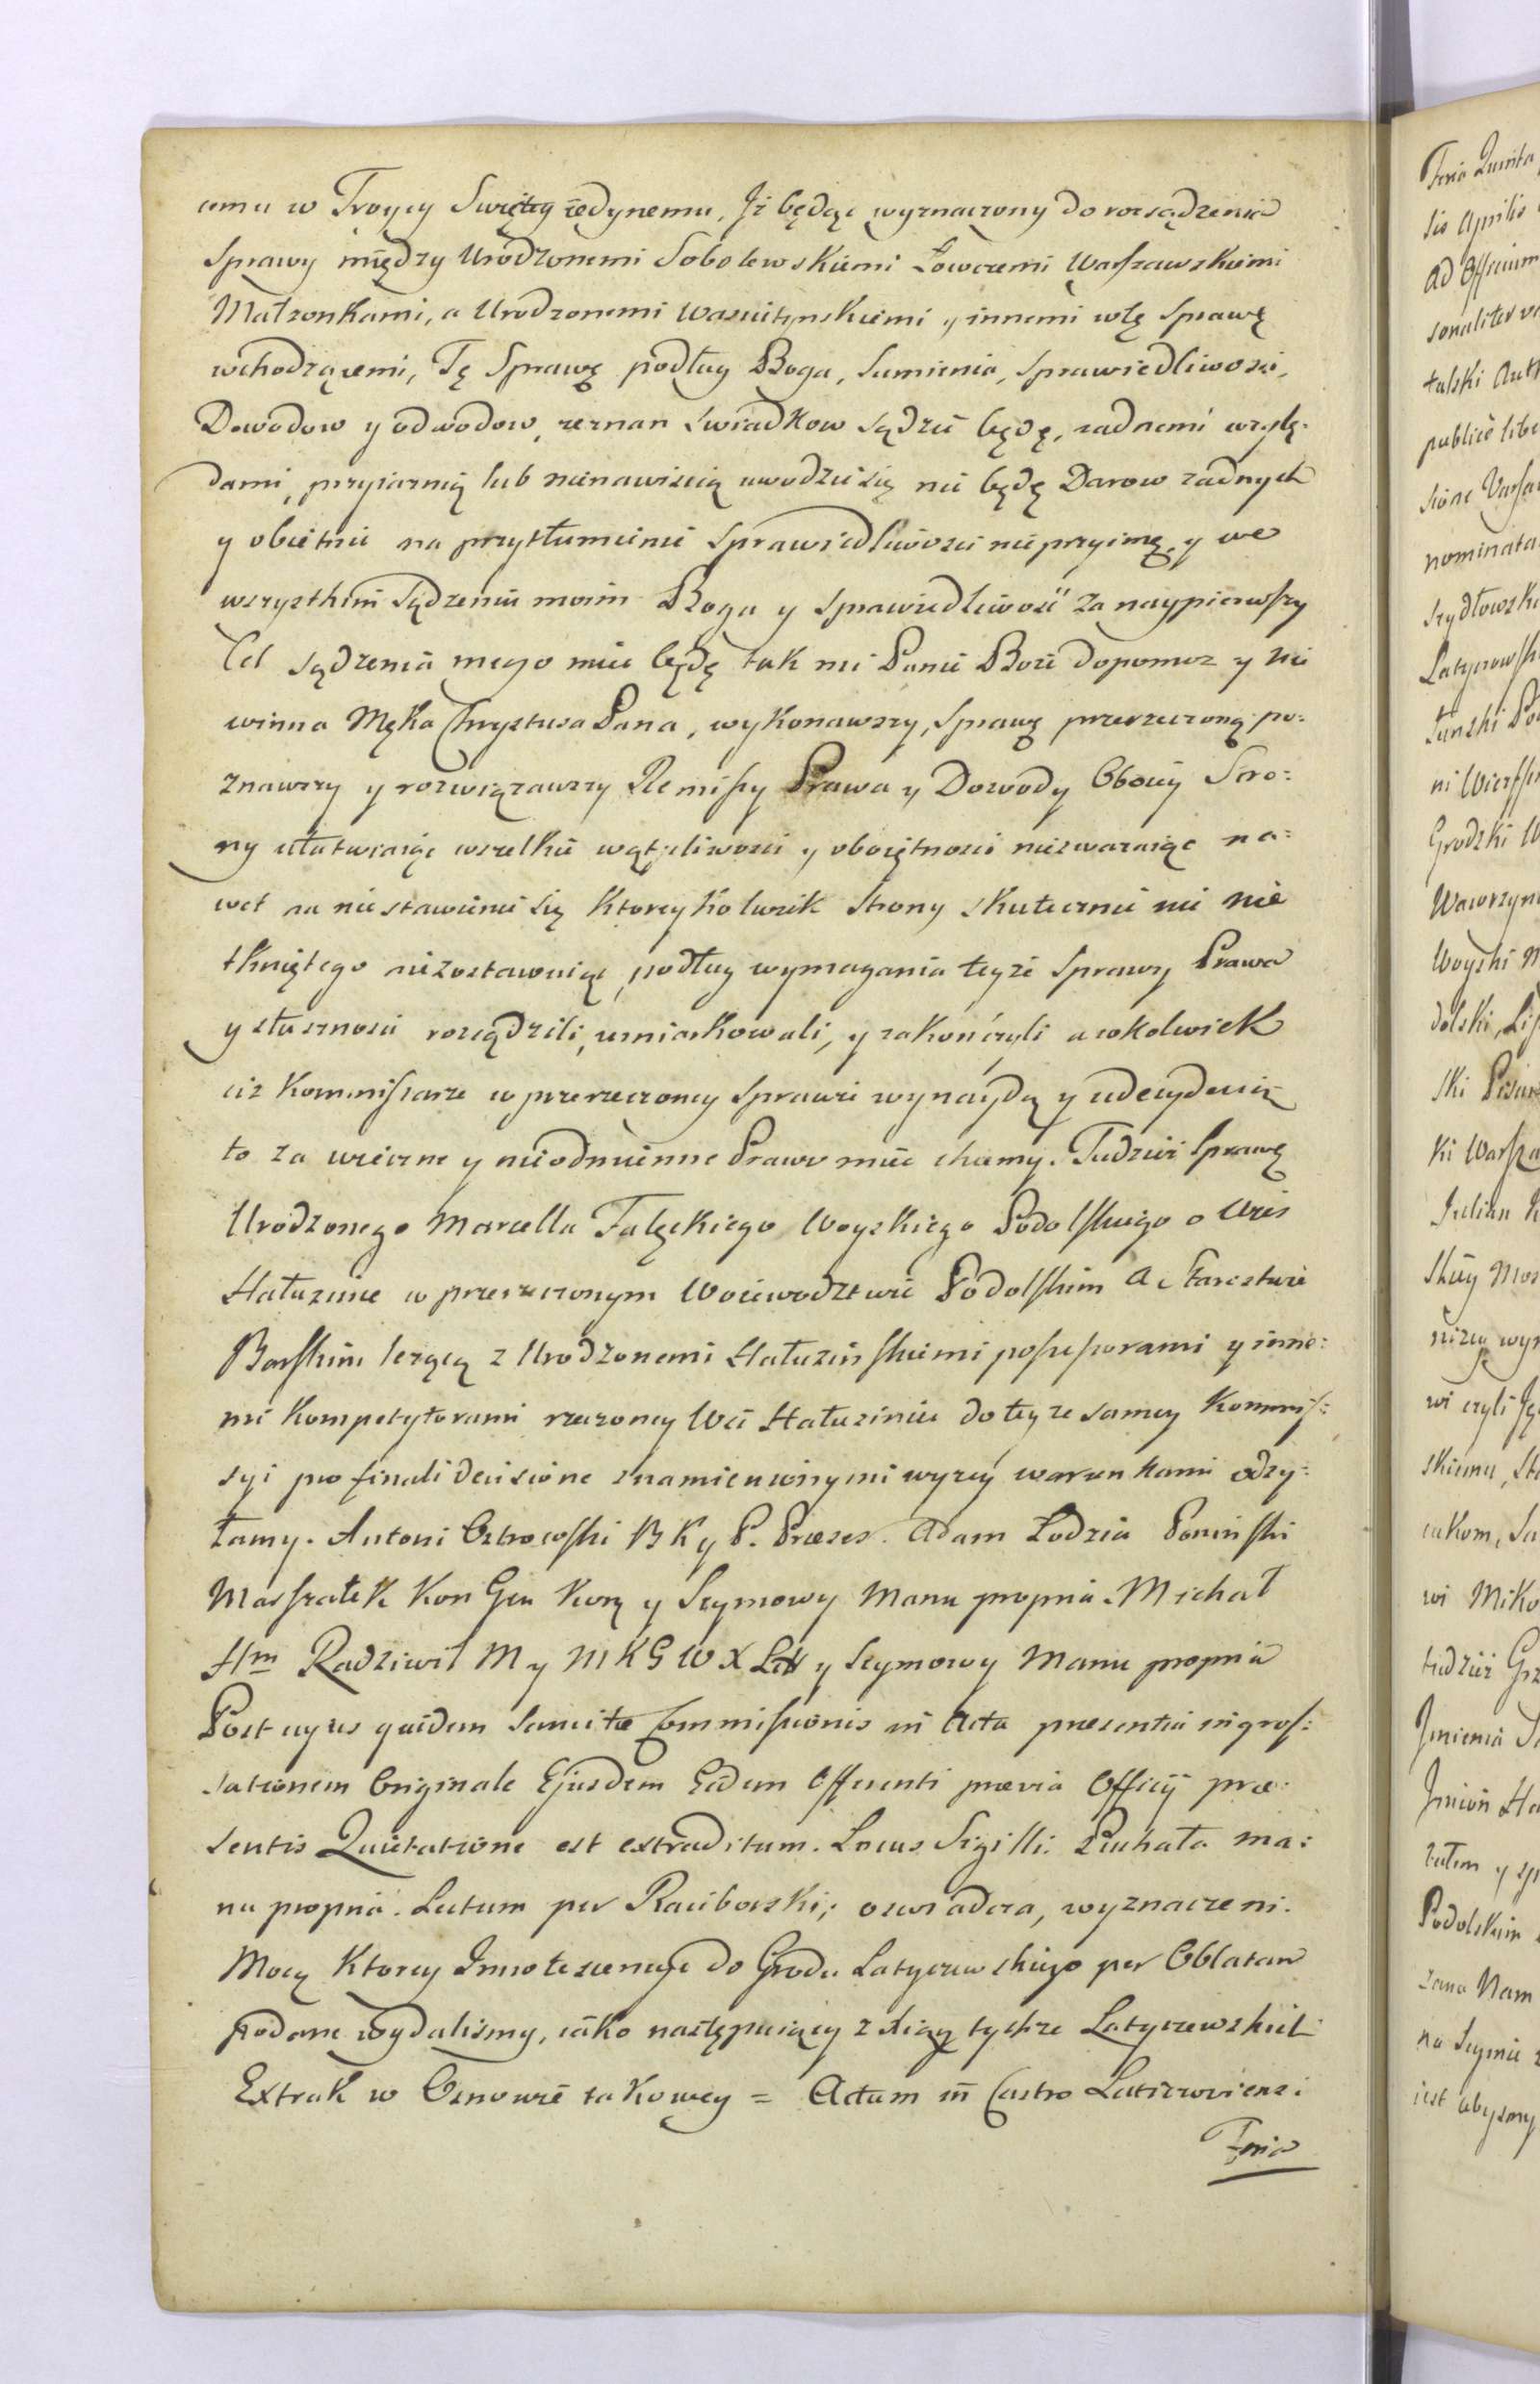 cemu w Troycy Swiętey iedynemu, Jż będąc wyznaczony do rozsądzenia
Sprawy między Urodzonemi Sobolewskiemi Łowczemi Warszawskiemi
Małzonkami, a Urodzonemi Wasiutynskiemi y innemi wtę Sprawę
wchodzącemi, Tę Sprawę podług Boga, Sumienia, Sprawiedliwosci,
Dowodow y odwodow, zeznan Swiadkow sądzić będę, zadnemi wzglę-
dami, przyiaznią lub nienawiscią uwodzić się nie będę Darow zadnych
y obietnic na przytłumienie Sprawiedliwosci nieprzyimę, y we
wszystkim Sądzeniu moim Boga y Sprawiedliwość za naypierwszy
Cel sądzenia mego mieć będę tak mi Panie Boże dopomoz y nie
winna Męka Chrystusa Pana, wykonawszy, Sprawę przerzeczoną po:
znawszy y rozwiązawszy Remissy Prawa y Dowody Oboiey Stro:
ny ułatwiaiąc wszelkie wątpliwosci y oboiętnosci niezwazaiąc na:
wet na niestawienie się ktoreykolwiek Strony skutecznie nic nie
tkniętego niezostawuiąc, podług wymagania teyże Sprawy Prawa
y słusznosci rozsądzili, umiarkowali, y zakończyli a cokolwiek
ciż Kommissarze w przerzeczoney Sprawie wynaydą y udecyduią
to za wieczne y nieodmienne Prawo mieć chcemy. Tudzież Sprawę
Urodzonego Marcella Falęckiego Woyskiego Podolskiego o Wieś
Hałuzince w przerzeczonym Woiewodztwie Podolskim a Starostwie
Barskim leżącą z Urodzonemi Hałuzińskiemi possessorami y inne:
mi Kompetytorami rzeczoney Wsi Hałuziniec do teyże samey Kommis:
syi pro finali decisione znamienionymi wyzey warunkami odsy:
łamy. Antoni Ostrowski B K y P. Prezes. Adam Łodzia Poninski
Marszałek Kon Gen Kor y Seymowy Manu propria. Michał
Hm Radziwił M y M K G W X Litt y Seymowy Manu propria
Post cujus quidem Sancitæ Commissionis in Acta præsentia ingros:
sationem Originale Ejusdem Eidem Offerenti prævia Officij præ:
sentis Quietatione est extraditum. Locus Sigilli. Piuhała ma:
nu propria. Lectum per Raciborski; oswiadcza, wyznaczeni.
Mocą Ktorey Innotescencye do Grodu Latyczewskiego per Oblatam
podane wydalismy, iako następuiący z Xiąg tychze Latyczewskich
Extrakt w Osnowie takowey = Actum in Castro Laticzoviensi
Feria